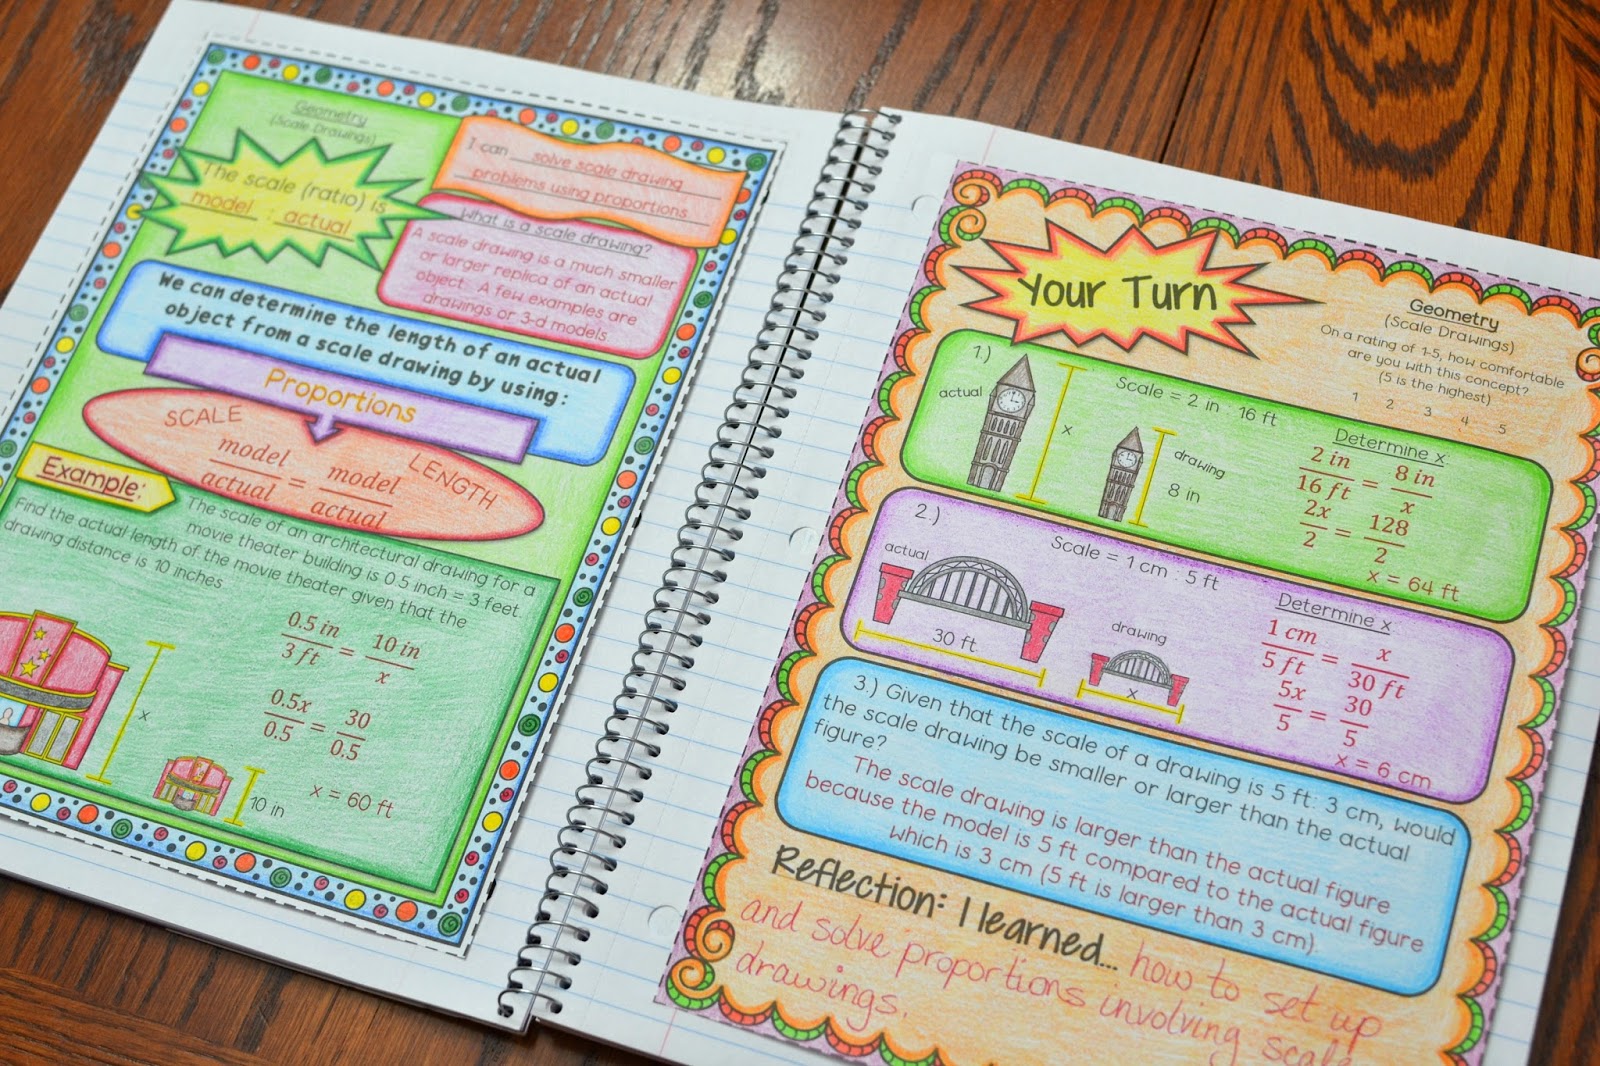 Geometry
(Scale Drawings)
The scale (ratio) is
model : actual
I can solve scale drawing
problems using proportions
What is a scale drawing?
A scale drawing is a much smaller
or larger replica of an actual
object. A few examples are
drawings or 3-d models.
We can determine the length of an actual
object from a scale drawing by using:
Proportions
SCALE
LENGTH
model/actual = model/actual
Example:
The scale of an architectural drawing for a
movie theater building is 0.5 inch = 3 feet.
Find the actual length of the movie theater given that the
drawing distance is 10 inches
0.5 in/3 ft = 10 in/x
0.5x/0.5 = 30/0.5
x = 60 ft
x
10 in
Your Turn
Geometry
(Scale Drawings)
On a rating of 1-5, how comfortable
are you with this concept?
(5 is the highest)
1 2 3 4 5
1.)
actual
x
Scale = 2 in : 16 ft
drawing
8 in
Determine x
2 in/16 ft = 8 in/x
2x/2 = 128/2
x = 64 ft
2.)
actual
30 ft.
Scale = 1 cm : 5 ft
drawing
x
Determine x
1 cm/5 ft = x/30 ft
5x/5 = 30/5
x = 6 cm
3.) Given that the scale of a drawing is 5 ft: 3 cm, would
the scale drawing be smaller or larger than the actual
figure?
The scale drawing is larger than the actual figure
because the model is 5 ft compared to the actual figure
which is 3 cm (5 ft is larger than 3 cm).
Reflection: I learned... how to set up
and solve proportions involving scale
drawings.